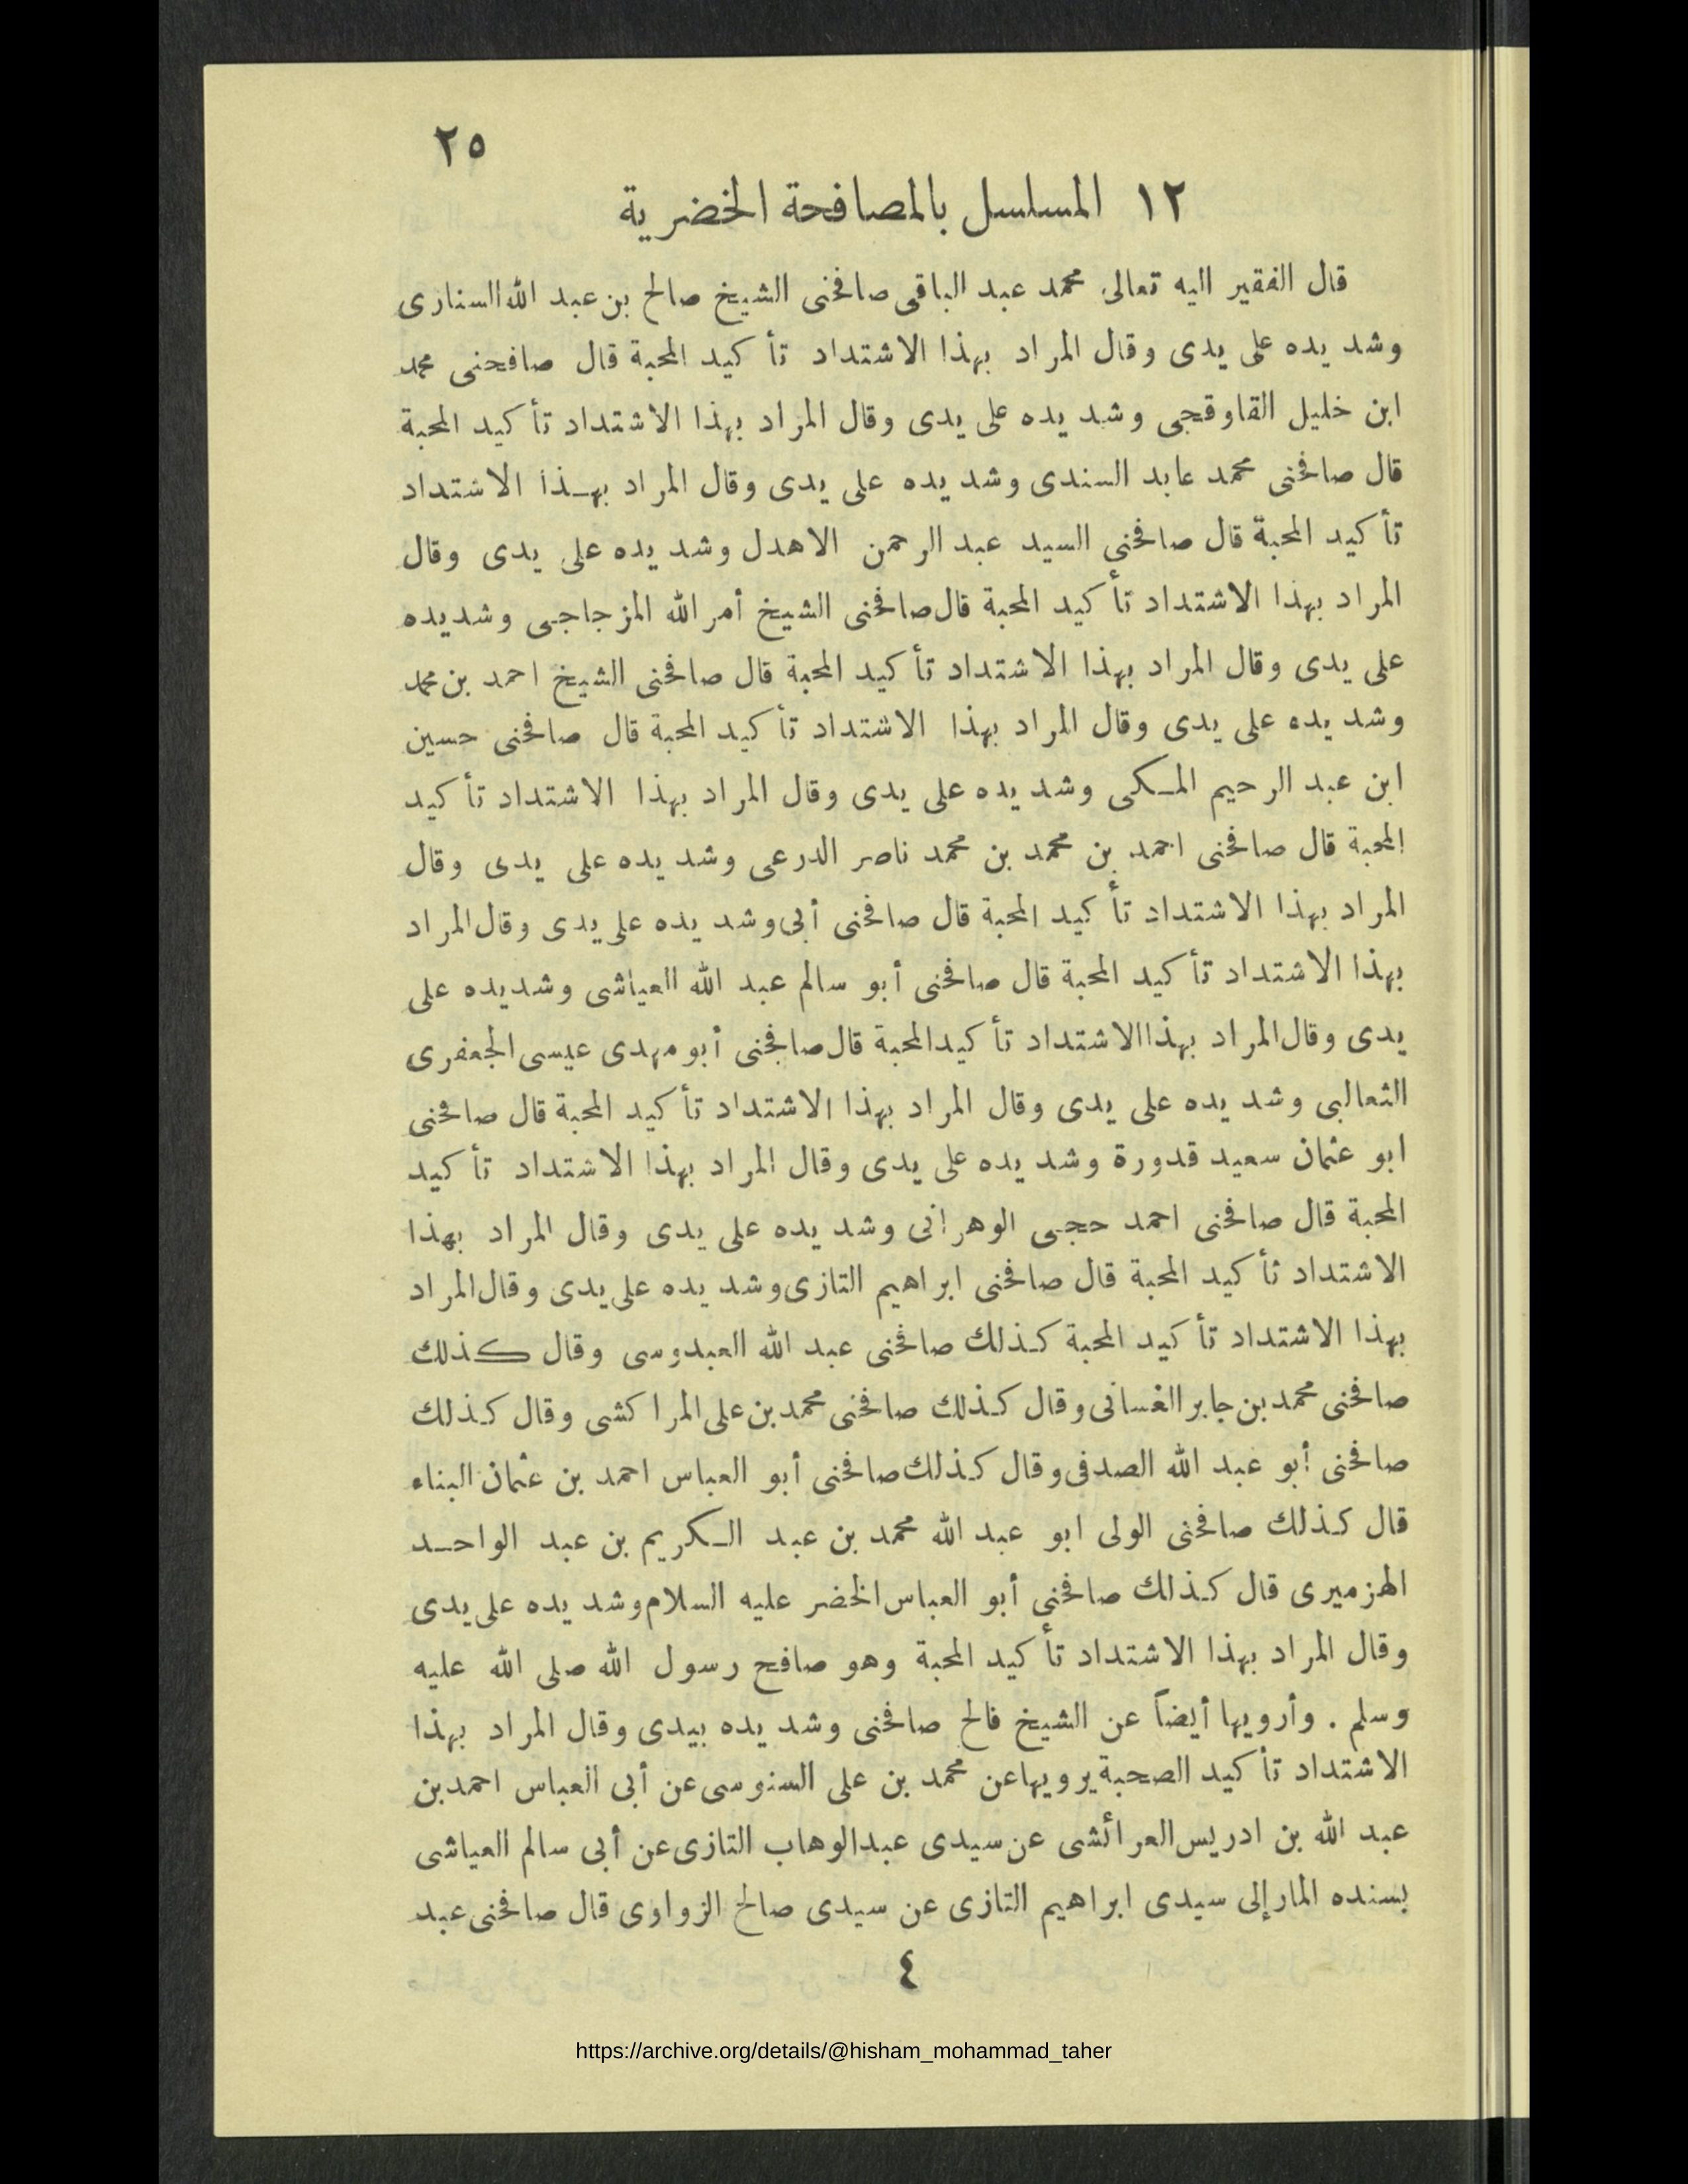 ٢٥
١٢ المسلسل بالمصافحة الخضرية
قال الفقير اليه تعالى محمد عبد الباقى صافحنى الشيخ صالح بن عبد الله السنارى
وشد يده على يدى وقال المراد بهذا الاشتداد تأكيد المحبة قال صافحنى محمد
ابن خليل القاوقجى وشد يده على يدى وقال المراد بهذا الاشتداد تأكيد المحبة
قال صافحنى محمد عابد السندى وشد يده على يدى وقال المراد بهذا الاشتداد
تأكيد المحبة قال صافحنى السيد عبد الرحمن الاهدل وشد يده على يدى وقال
المراد بهذا الاشتداد تأكيد المحبة قال صافحنى الشيخ أمر الله المزجاجى وشد يده
على يدى وقال المراد بهذا الاشتداد تأكيد المحبة قال صافحنى الشيخ احمد بن محمد
وشد يده على يدى وقال المراد بهذا الاشتداد تأكيد المحبة قال صافحنى حسين
ابن عبد الرحيم المكى وشد يده على يدى وقال المراد بهذا الاشتداد تأكيد
المحبة قال صافحنى احمد بن محمد بن محمد ناصر الدرعى وشد يده على يدى وقال
المراد بهذا الاشتداد تأكيد المحبة قال صافحنى أبى وشد يده على يدى وقال المراد
بهذا الاشتداد تأكيد المحبة قال صافحنى أبو سالم عبد الله العياشى وشد يده على
يدى وقال المراد بهذا الاشتداد تأكيد المحبة قال صافحنى أبو مهدى عيسى الجعفرى
الثعالبى وشد يده على يدى وقال المراد بهذا الاشتداد تأكيد المحبة قال صافحنى
ابو عثمان سعيد قدورة وشد يده على يدى وقال المراد بهذا الاشتداد تأكيد
المحبة قال صافحنى احمد حجى الوهرانى وشد يده على يدى وقال المراد بهذا
الاشتداد تأكيد المحبة قال صافحنى ابراهيم التازى وشد يده على يدى وقال المراد
بهذا الاشتداد تأكيد المحبة كذلك صافحنى عبد الله العبدوسى وقال كذلك
صافحنى محمد بن جابر الغسانى وقال كذلك صافحنى محمد بن على المراكشى وقال كذلك
صافحنى أبو عبد الله الصدفى وقال كذلك صافحنى أبو العباس احمد بن عثمان البناء
قال كذلك صافحنى الولى ابو عبد الله محمد بن عبد الكريم بن عبد الواحد
الهزميرى قال كذلك صافحنى أبو العباس الخضر عليه السلام وشد يده على يدى
وقال المراد بهذا الاشتداد تأكيد المحبة وهو صافح رسول الله صلى الله عليه
وسلم . وأرويها أيضاً عن الشيخ فالح صافحنى وشد يده بيدى وقال المراد بهذا
الاشتداد تأكيد الصحبة يرويها عن محمد بن على السنوسى عن أبى العباس احمد بن
عبد الله بن ادريس العرائشى عن سيدى عبد الوهاب التازى عن أبى سالم العياشى
بسنده المار إلى سيدى ابراهيم التازى عن سيدى صالح الزواوى قال صافحنى عبد
٤
https://archive.org/details/@hisham_mohammad_taher